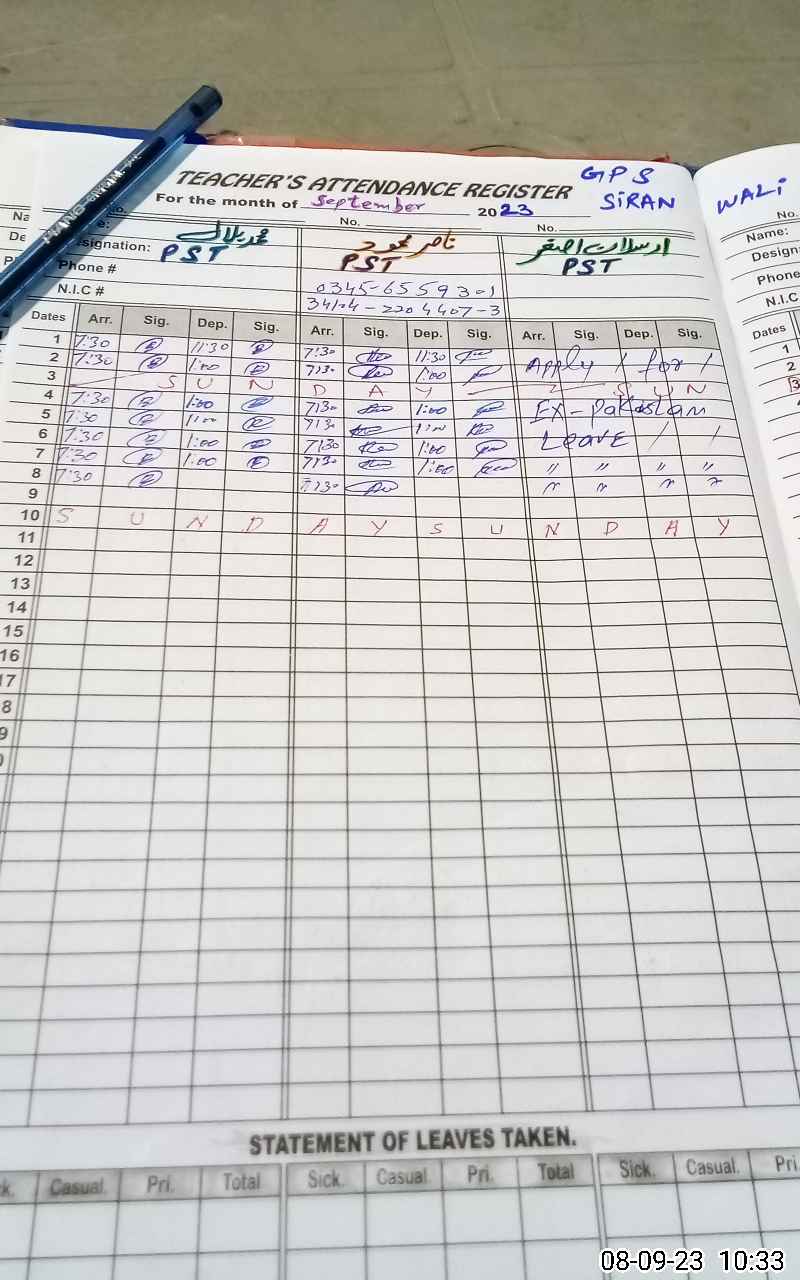 TEACHER'S ATTENDANCE REGISTER
GPS
SIRAN WALI
For the month of September 2023
No. No. No.
Name:
Designation: PST PST PST
محمد بلال ناصر محمود ارسلان اصغر
Phone # 0345-6559301
N.I.C # 34104-2204407-3
Dates Arr. Sig. Dep. Sig. Arr. Sig. Dep. Sig. Arr. Sig. Dep. Sig.
1 7:30 11:30 7:30 11:30 Apply / for /
2 7:30 1:00 7:30 1:00
3 S U N D A Y S U N
4 7:30 1:00 7:30 1:00 Ex-Pakistan
5 7:30 1:00 7:30 1:00 Leave / /
6 7:30 1:00 7:30 1:00
7 7:30 1:00 7:30 1:00 " " " "
8 7:30 7:30 " " " "
9
10 S U N D A Y S U N D A Y
11
12
13
14
15
16
17
8
9
0
STATEMENT OF LEAVES TAKEN.
k. Casual. Pri. Total Sick. Casual. Pri. Total Sick. Casual. Pri.
No.
Name:
Design
Phone
N.I.C
Dates
1
2
3
MIANG
08-09-23 10:33